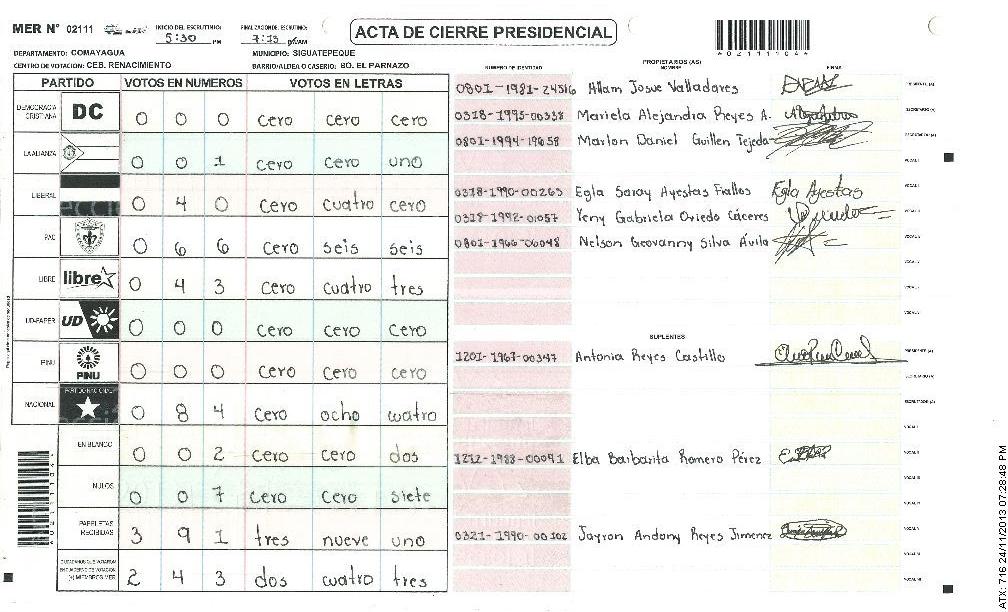 MER N° 02111 INICIO DEL ESCRUTINIO: 5:30 PM FINALIZACION DEL ESCRUTINIO: 7:13 ACTA DE CIERRE PRESIDENCIAL
DEPARTAMENTO: COMAYAGUA MUNICIPIO: SIGUATEPEQUE
CENTRO DE VOTACION: CEB. RENACIMIENTO BARRIO/ALDEA O CASERIO: BO. EL PARNAZO
PARTIDO VOTOS EN NUMEROS VOTOS EN LETRAS
DEMOCRACIA CRISTIANA DC 0 0 0 cero cero cero
LA ALIANZA 0 0 1 cero cero uno
LIBERAL 0 4 0 cero cuatro cero
PAC 0 6 6 cero seis seis
LIBRE libre 0 4 3 cero cuatro tres
UD-FAPER UD 0 0 0 cero cero cero
PINU PINU 0 0 0 cero cero cero
NACIONAL 0 8 4 cero ocho cuatro
EN BLANCO 0 0 2 cero cero dos
NULOS 0 0 7 cero cero siete
PAPELETAS RECIBIDAS 3 9 1 tres nueve uno
CIUDADANOS QUE VOTARON EN CUADERNO DE VOTACION (+) MIEMBROS MER 2 4 3 dos cuatro tres
PROPIETARIOS (AS)
NUMERO DE IDENTIDAD NOMBRE FIRMA
0801-1981-24516 Allam Josue Valladares PRESIDENTE (A)
0318-1995-00338 Mariela Alejandra Reyes A. SECRETARIO (A)
0801-1994-19658 Marlon Daniel Guillen Tejeda ESCRUTADOR (A)
VOCAL I
0318-1990-00263 Egla Saray Ayestas Fiallos Egla Ayestas
0318-1992-01057 Yeny Gabriela Oviedo Cáceres
0801-1966-06048 Nelson Geovanny Silva Ávila
SUPLENTES
1201-1967-00347 Antonia Reyes Castillo PRESIDENTE (A)
SECRETARIO (A)
ESCRUTADOR (A)
VOCAL I
1212-1988-00091 Elba Barbarita Romero Pérez
0321-1990-00102 Jayron Andony Reyes Jimenez
ATX: 716 24/11/2013 07:28:48 PM